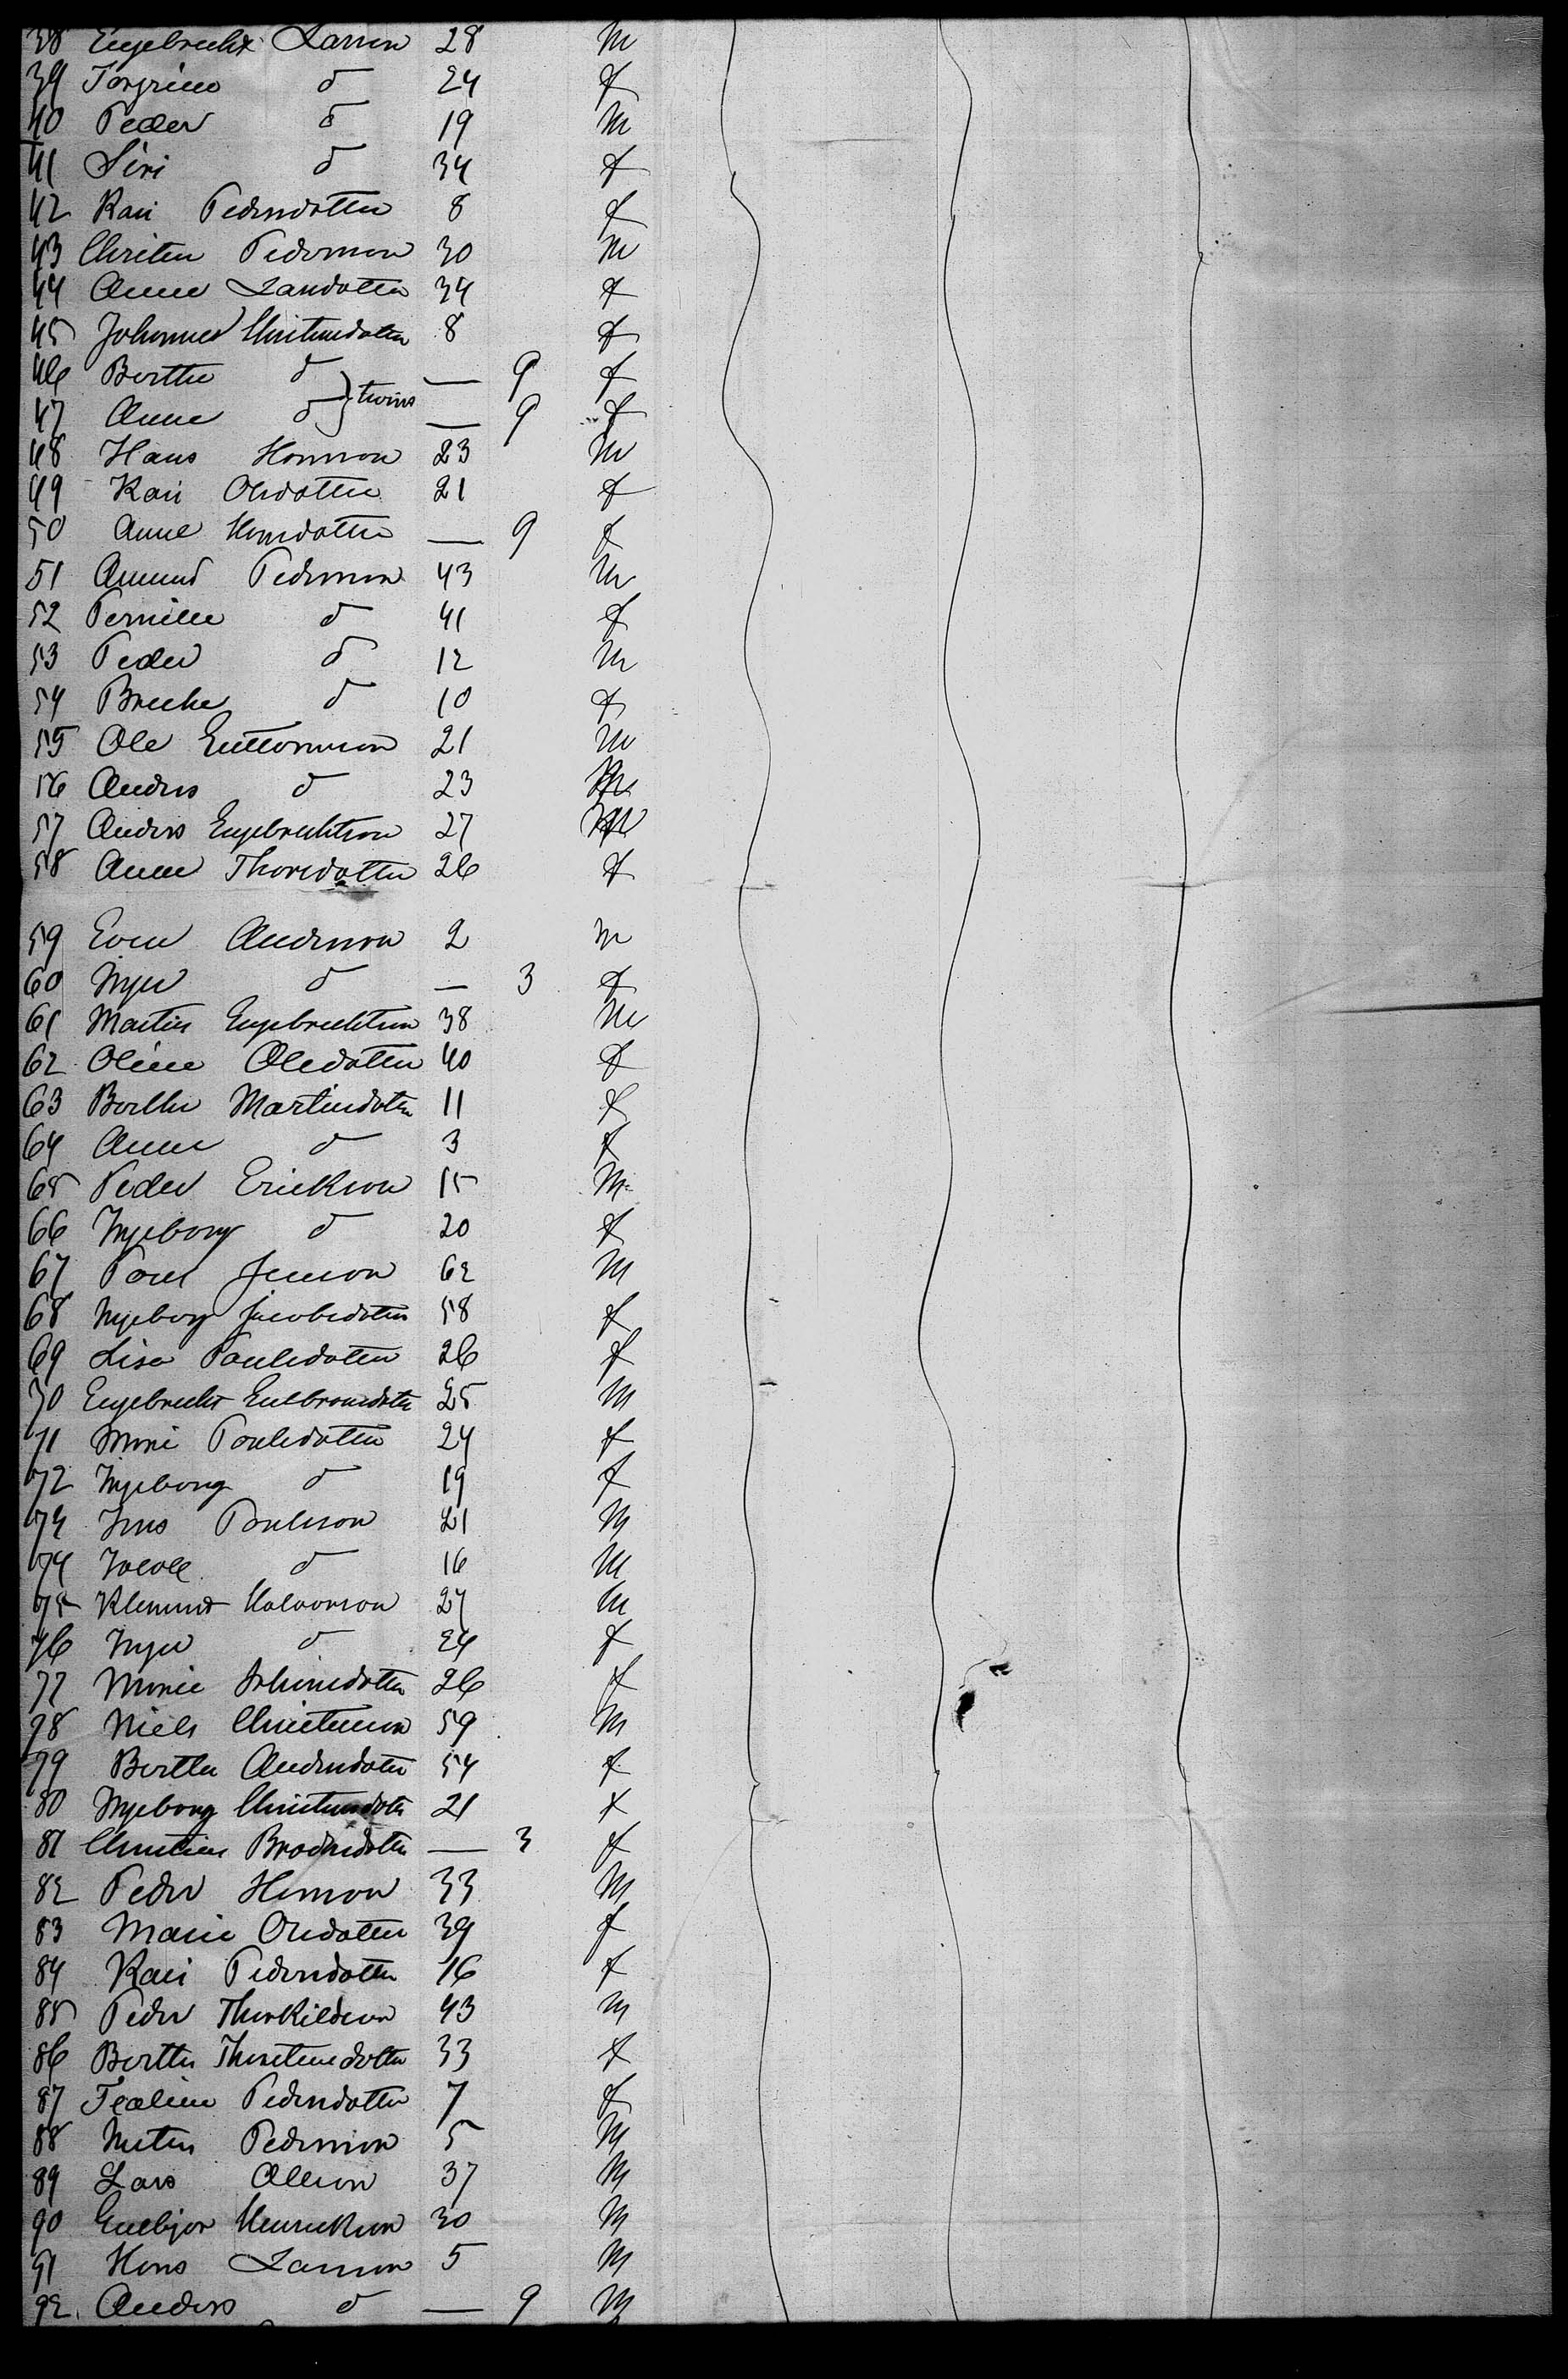 38 Engebrecht Larsen 28 m
39 Torgrine d 24 f
40 Peder d 19 m
41 Siri d 34 f
42 Kari Pedersdatter 8 f
43 Christen Pederson 30 m
44 Anne Larsdatter 34 f
45 Johanne Christensdatter 8 f
46 Berthe d } twins — 9 f
47 Anne d — 9 f
48 Hans Hanson 23 m
49 Kari Olesdatter 21 f
50 Anne Hansdatter — 9 f
51 Amund Pederson 43 m
52 Pernille d 41 f
53 Peder d 12 m
54 d 10 f
55 Ole 21 m
56 Anders d 23 m
57 Anders Engebrechtson 27 m
58 Anne Thorsdatter 26 f
59 Even Anderson 2 m
60 Inger d — 3 f
61 Martin Engebrechtson 38 m
62 Oline Olesdatter 40 f
63 Berthe Martinsdatter 11 f
64 Anne d 3 f
65 Peder Erickson 15 m
66 Ingeborg d 20 f
67 Poul Jenson 62 m
68 Ingeborg Jacobsdatter 58 f
69 Lisa Poulsdatter 26 f
70 Engebrecht 25 m
71 Poulsdatter 24 f
72 Ingeborg d 19 f
73 Jens Poulson 21 m
74 Jacob d 16 m
75 Halvorson 27 m
76 Inger d 24 f
77 26 f
78 Niels Christenson 59 m
79 Berthe Andersdatter 54 f
80 Ingeborg Christensdatter 21 f
81 — 3 f
82 Peder Hanson 33 m
83 Marie Olesdatter 39 f
84 Kari Pedersdatter 16 f
85 Peder Thorkildson 43 m
86 Berthe Thorstensdatter 33 f
87 Pedersdatter 7 f
88 Pederson 5 m
89 Lars Olleson 37 m
90 Henrickson 30 m
91 Hans Larson 5 m
92 Anders d — 9 m